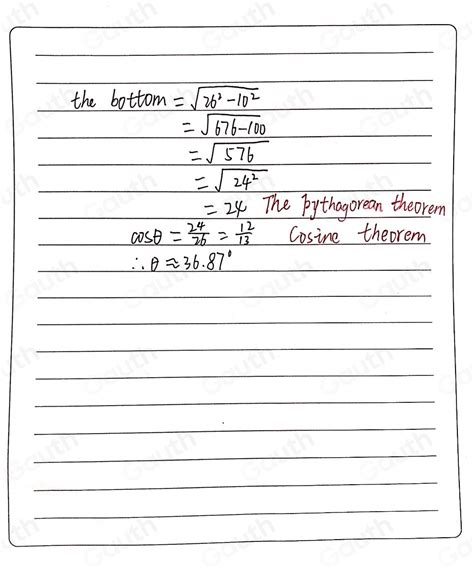 the bottom = √26² - 10²
= √676-100
= √576
= √24²
= 24 The pythagorean theorem
cosθ = 24/26 = 12/13 Cosine theorem
∴ θ ≈ 36.87°